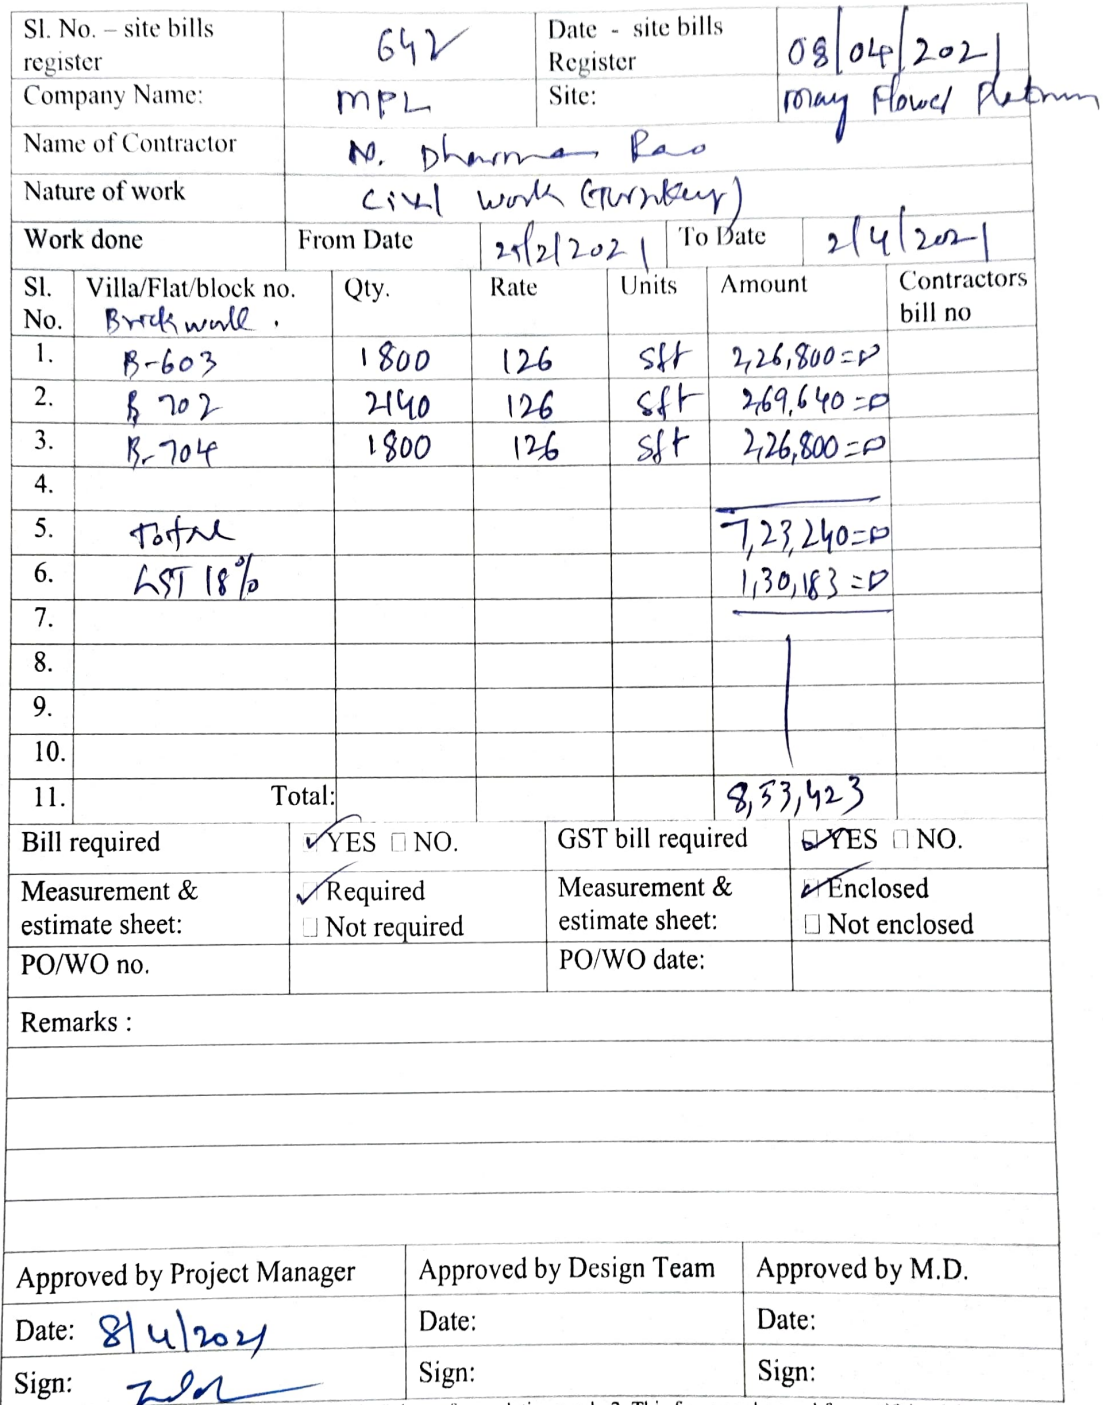 Sl. No. – site bills register 642 Date - site bills Register 08/04/2021
Company Name: MPL Site: may Flower Platinum
Name of Contractor N. Dharma Rao
Nature of work Civil work (Turnkey)
Work done From Date 25/2/2021 To Date 2/4/2021
Sl. No. Villa/Flat/block no. Qty. Rate Units Amount Contractors bill no
Brick work .
1. B-603 1800 126 sft 2,26,800=0
2. B 702 2140 126 sft 2,69,640=0
3. B-704 1800 126 sft 2,26,800=0
4.
5. Total 7,23,240=0
6. GST 18% 1,30,183=0
7.
8.
9.
10.
11. Total: 8,53,423
Bill required YES NO. GST bill required YES NO.
Measurement & estimate sheet: Required Measurement & estimate sheet: Enclosed
Not required Not enclosed
PO/WO no. PO/WO date:
Remarks :
Approved by Project Manager Approved by Design Team Approved by M.D.
Date: 8/4/2021 Date: Date:
Sign: Sign: Sign: